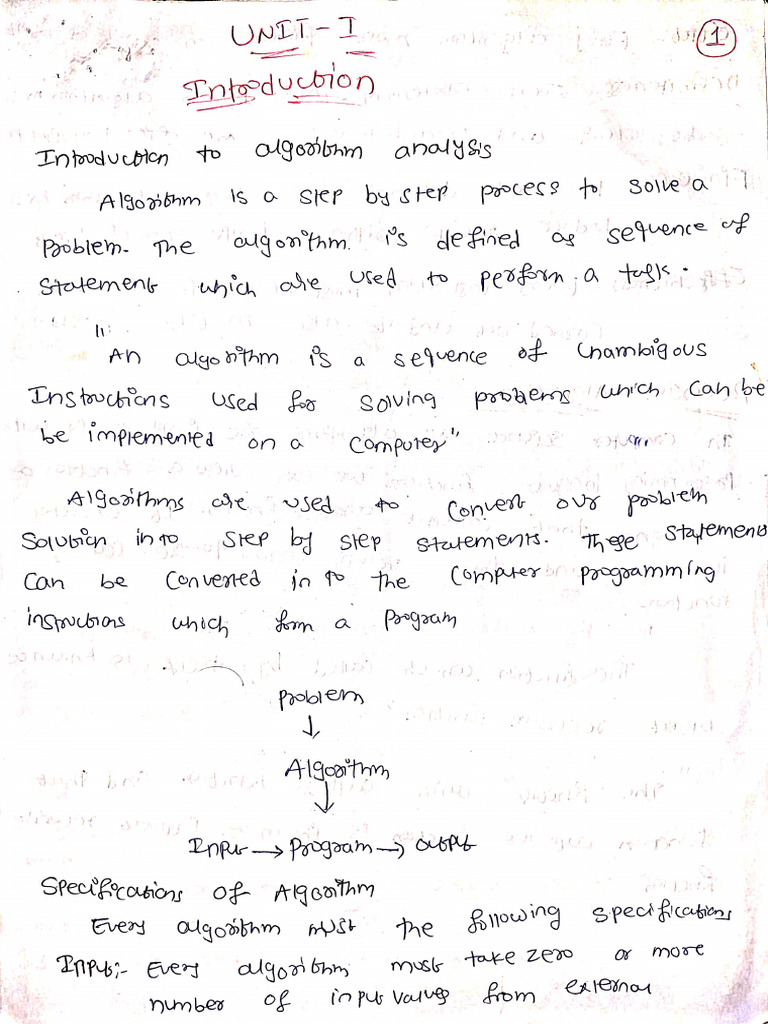 UNIT-I
1
Introduction
Introduction to algorithm analysis
Algorithm is a step by step process to solve a
problem. The algorithm is defined as sequence of
statement which are used to perform a task.
":
An algorithm is a sequence of Unambigous
Instructions used for solving problems which can be
be implemented on a computer"
Algorithms are used to convert our problem
solution in to step by step statements. These statements
can be converted in to the computer programming
instructions which form a program
problem
↓
Algorithm
↓
Input → program → output
Specifications of Algorithm
Every algorithm must the following specifications
Input:- Every algorithm must take zero or more
number of input values from external